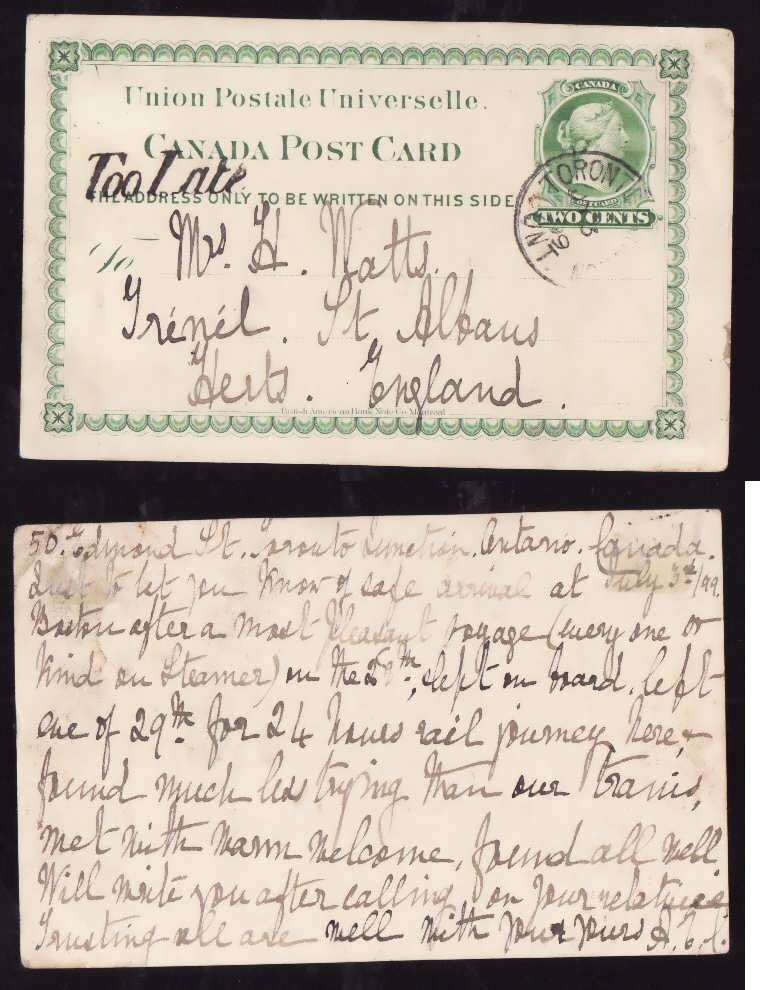 CANADA
Union Postale Universelle.
CANADA POST CARD
Too Late
THE ADDRESS ONLY TO BE WRITTEN ON THIS SIDE
POST CARD
TWO CENTS
TORON
JUNCT
To Mrs. H. Watts.
St Albans
Herts. England.
British American Bank Note Co. Montreal
50. Edmond St. Toronto Junction. Ontario. Canada.
July 3rd/99.
Just to let you know of safe arrival at
Boston after a most pleasant voyage (every one so
kind on Steamer) on the 28th, slept on board. left
eve of 29th for 24 hours rail journey here, &
found much less trying than our trains,
met with warm welcome, found all well
Will write you after calling on your relatives
Trusting all are well with you & yours A.